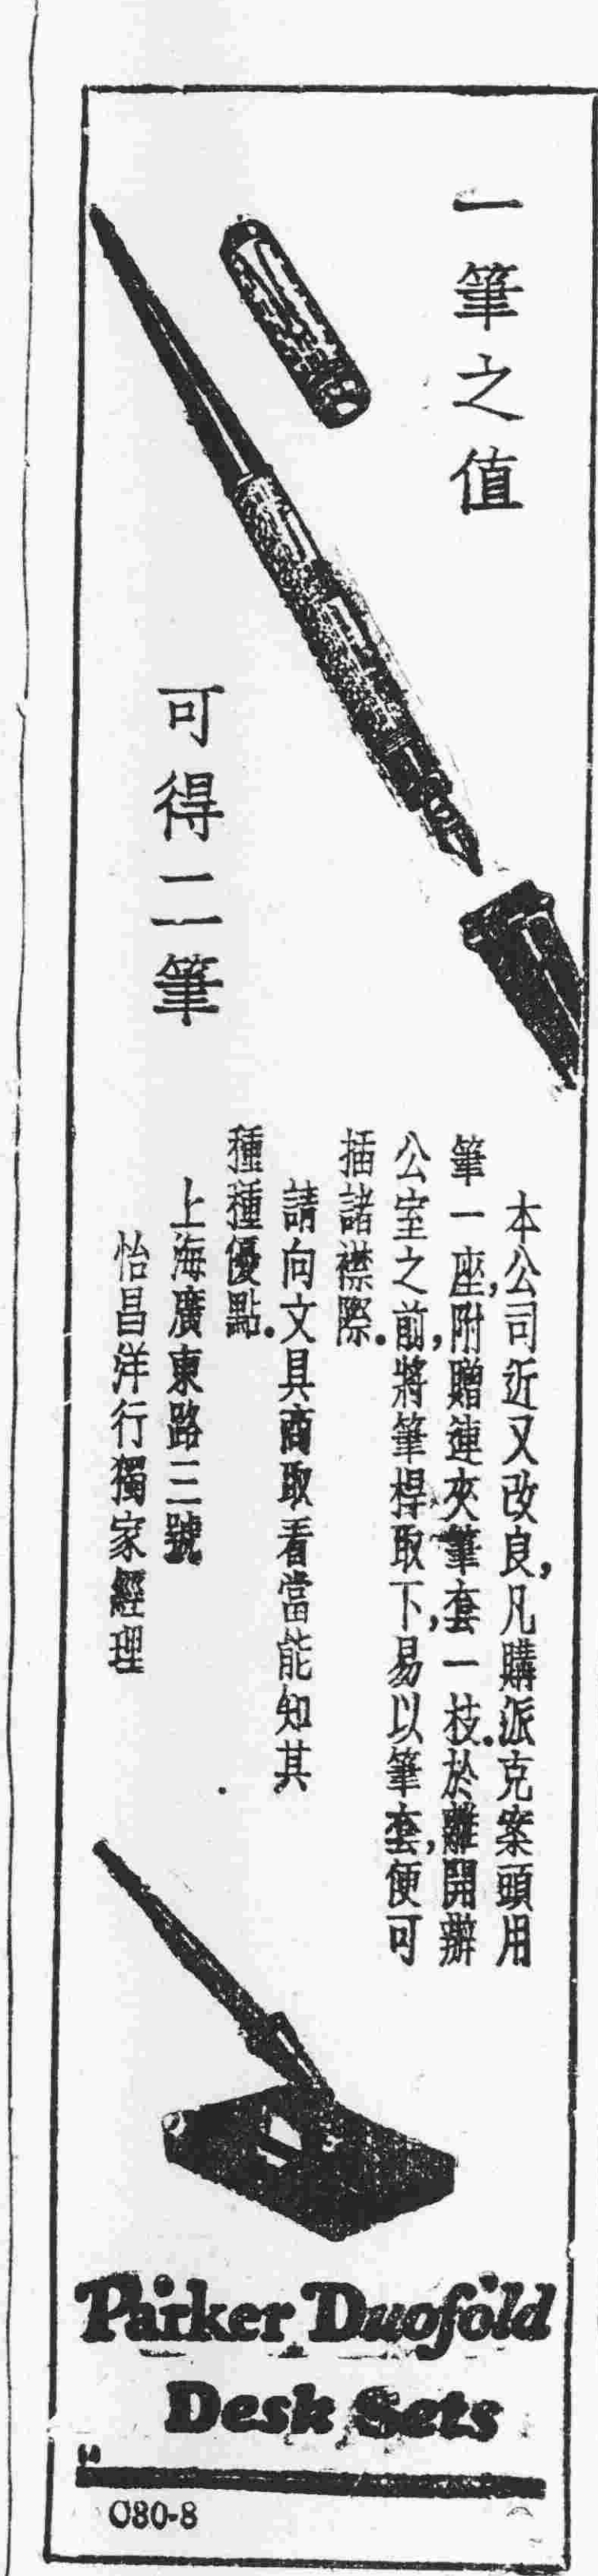 一筆之值
可得二筆
本公司近又改良,凡購派克案頭用
筆一座,附贈連夾筆套一枝.於離開辦
公室之前,將筆桿取下,易以筆套,便可
插諸襟際.
請向文具商取看當能知其
種種優點.
上海廣東路三號
怡昌洋行獨家經理
Parker Duofold
Desk Sets
080-8